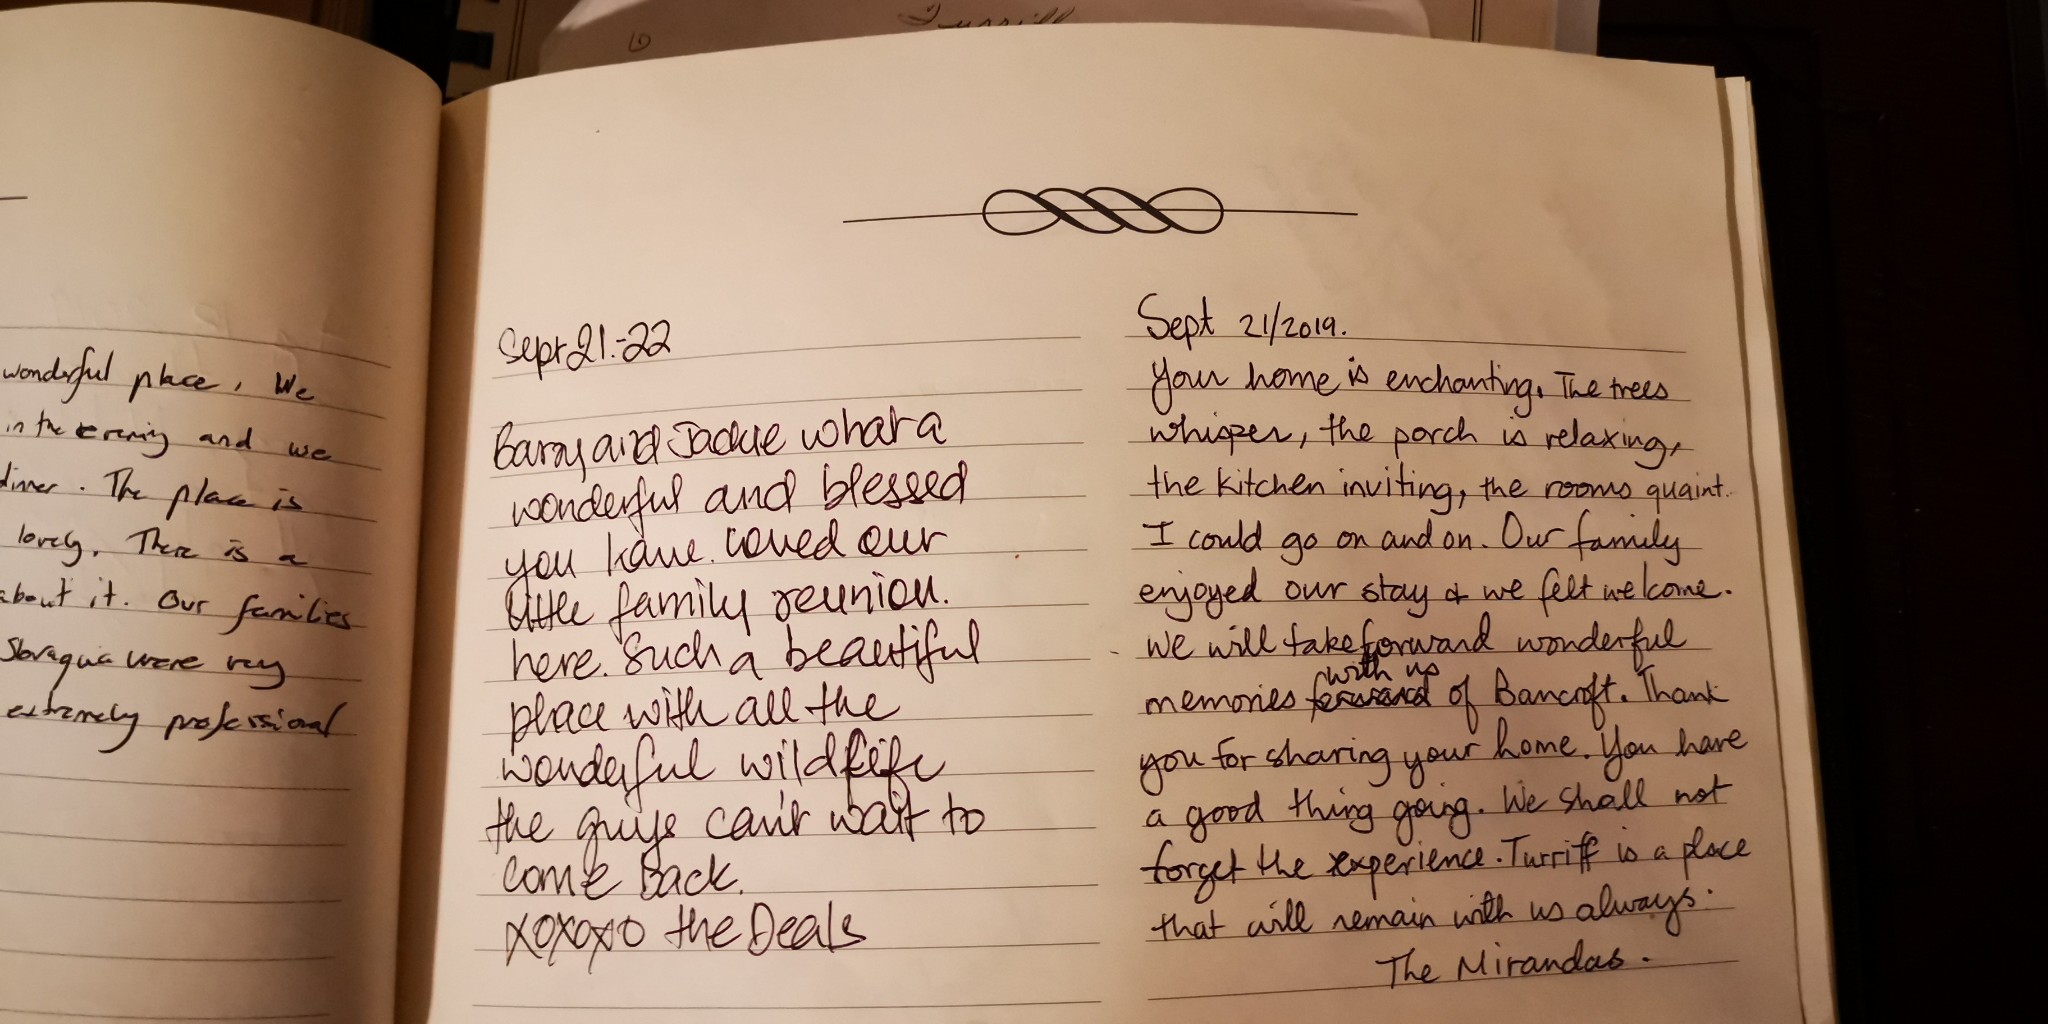 Turriff
wonderful place. We
in the evening and we
dinner. The place is
lovely. There is a
about it. Our families
were very
extremely professional
Sept 21-22
Barry and Jackie what a
wonderful and blessed
you have. Loved our
little family reunion.
here. Such a beautiful
place with all the
wonderful wildlife
the guys can't wait to
come back.
XOXOXO the Deals
Sept 21/2019.
Your home is enchanting. The trees
whisper, the porch is relaxing,
the kitchen inviting, the rooms quaint.
I could go on and on. Our family
enjoyed our stay & we felt welcome.
We will take forward wonderful
memories with us of Bancroft. Thank
you for sharing your home. You have
a good thing going. We shall not
forget the experience. Turriff is a place
that will remain with us always.
The Mirandas.